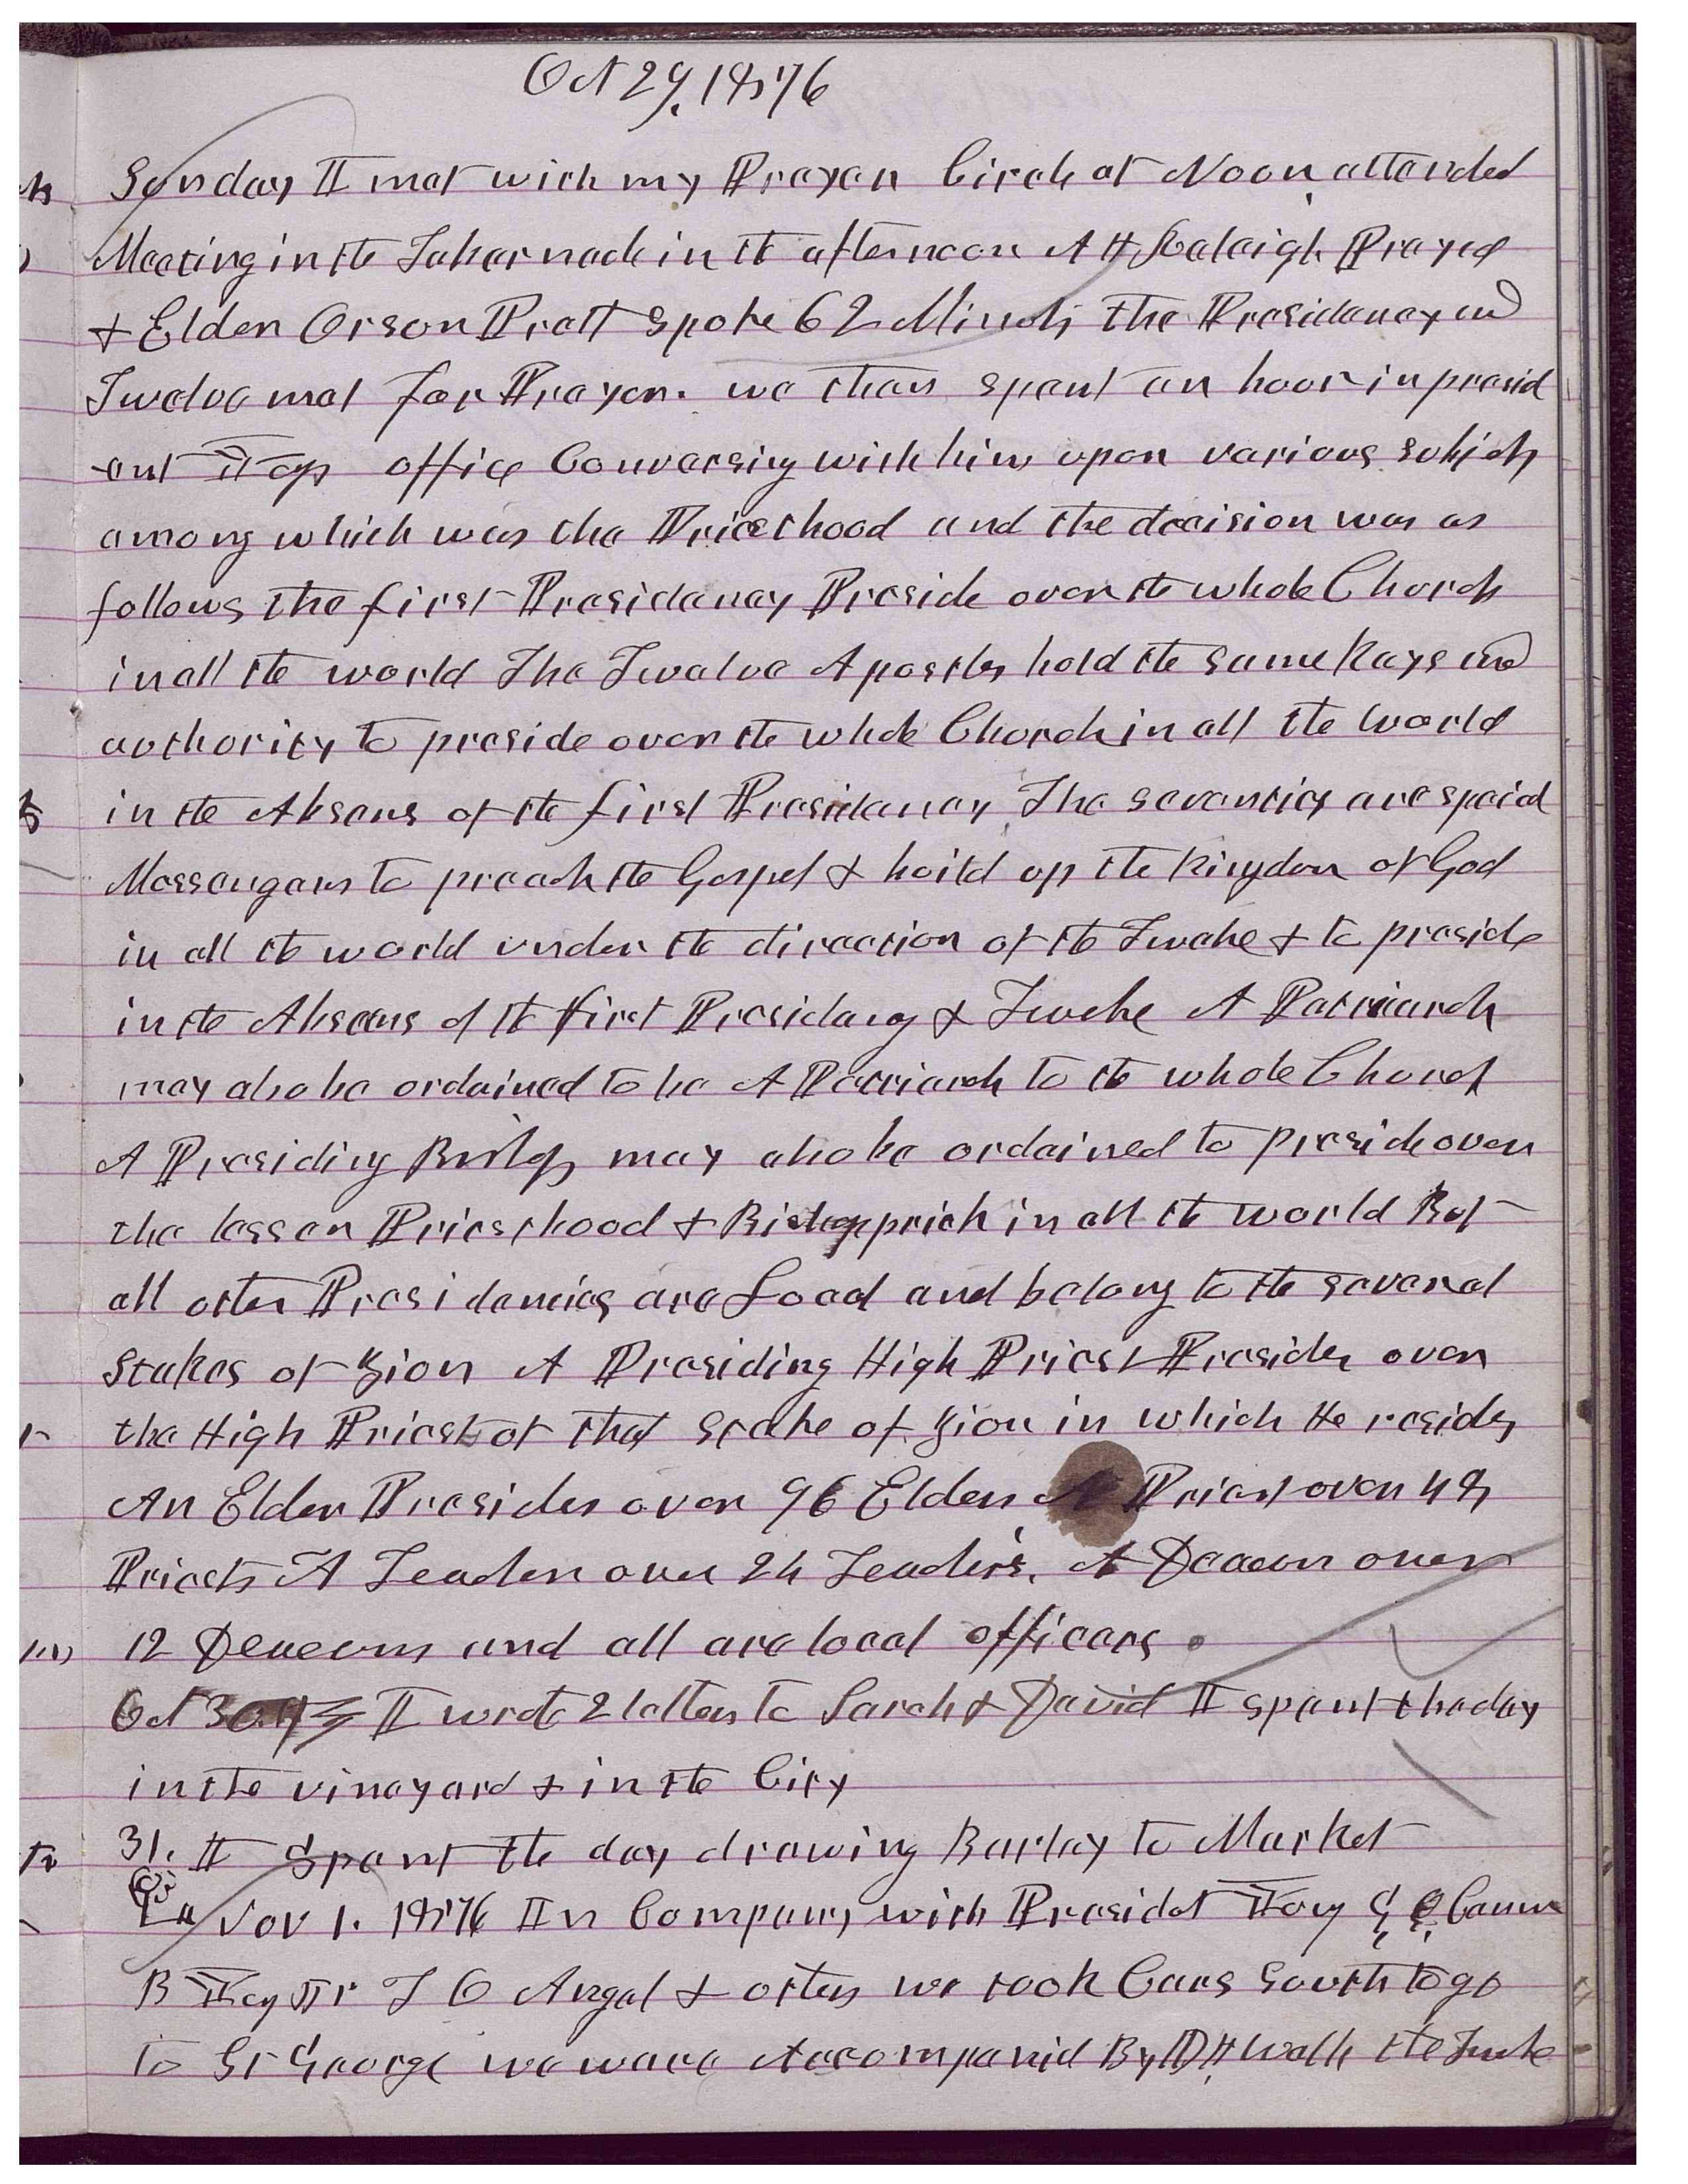 Oct 29, 1876
Sunday I met with my Prayer Circle at Noon, attended
Meeting in the Tabernacle in the afternoon A H Raleigh Prayed
& Elder Orson Pratt Spoke 62 Minuts The Presidency and
Twelve met for Prayer. we then spent an hour in presid
-ent Youngs office Conversing with him upon various subjects
among which was the Priesthood and the decision was as
follows The first Presidency Preside over the whole Church
in all the world The Twelve Apostles hold the same Keys and
authority to preside over the whole Church in all the world
in the Absens of the first Presidency, The seventies are special
Messengers to preach the Gospel & build up the Kingdom of God
in all the world under the direction of the Twelve & to preside
in the Absens of the first Presidency & Twelve A Patriarch
may also be ordained to be A Patriarch to the whole Church
A Presiding Bishop may also be ordained to preside over
the lesser Priesthood & Bishopprick in all the world But
all other Presidencies are Local and belong to the several
Stakes of Zion A Presiding High Priest Presides over
the High Priest of that Stake of Zion in which He resides
An Elder Presides over 96 Elders A Priest over 48
Priests A Teacher over 24 Teachers, A Deacon over
12 Deacons and all are local officers.
Oct 30 I wrote 2 letters to Sarah & David I spent the day
in the vineyard & in the City
31. I Spent the day drawing Barley to Market
Nov 1. 1876 In Company with President Young G Q Cannon
B Young Jr T O Angel & others we took Cars South to go
to St George we were Accompanied By D H Wells the Twelve